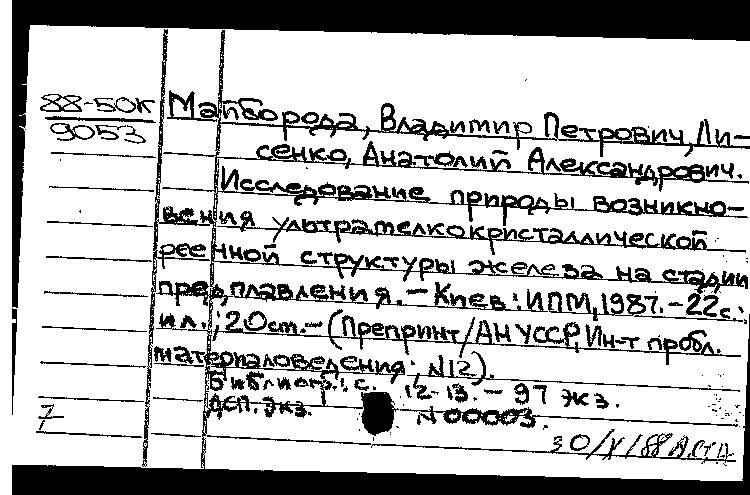 88-50К
9053
Майборода, Владимир Петрович, Ли-
сенко, Анатолий Александрович.
Исследование природы возникно-
вения ультрамелкокристаллической
реенной структуры железа на стадии
предплавления. - Киев: ИПМ, 1987. - 22с.:
ил.; 20см. - (Препринт/АН УССР, Ин-т пробл.
материаловедения; №12).
Библиогр.: с. 12-13. - 97 экз.
ДСП. экз. №00003.
30/V/88